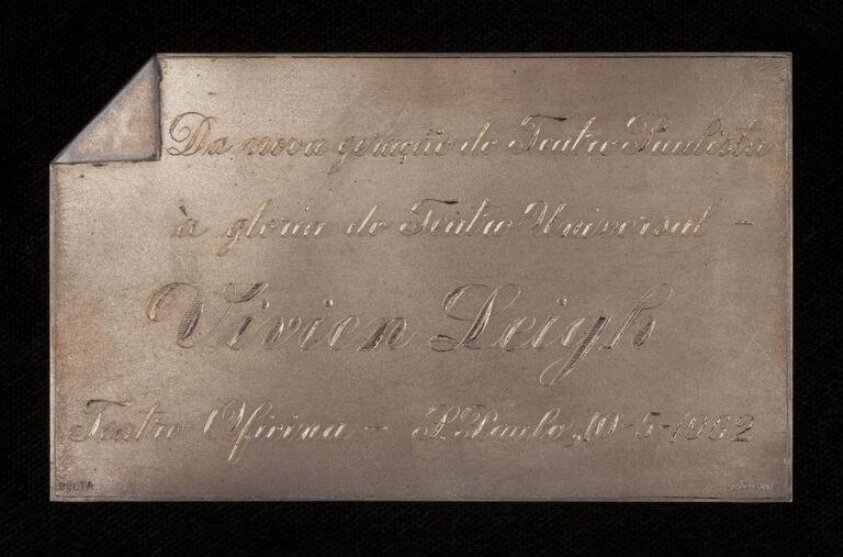 Da nova geração do Teatro Paulista
à gloria do Teatro Universal -
Vivien Leigh
Teatro Oficina - S. Paulo, 10-5-1962
PRATA